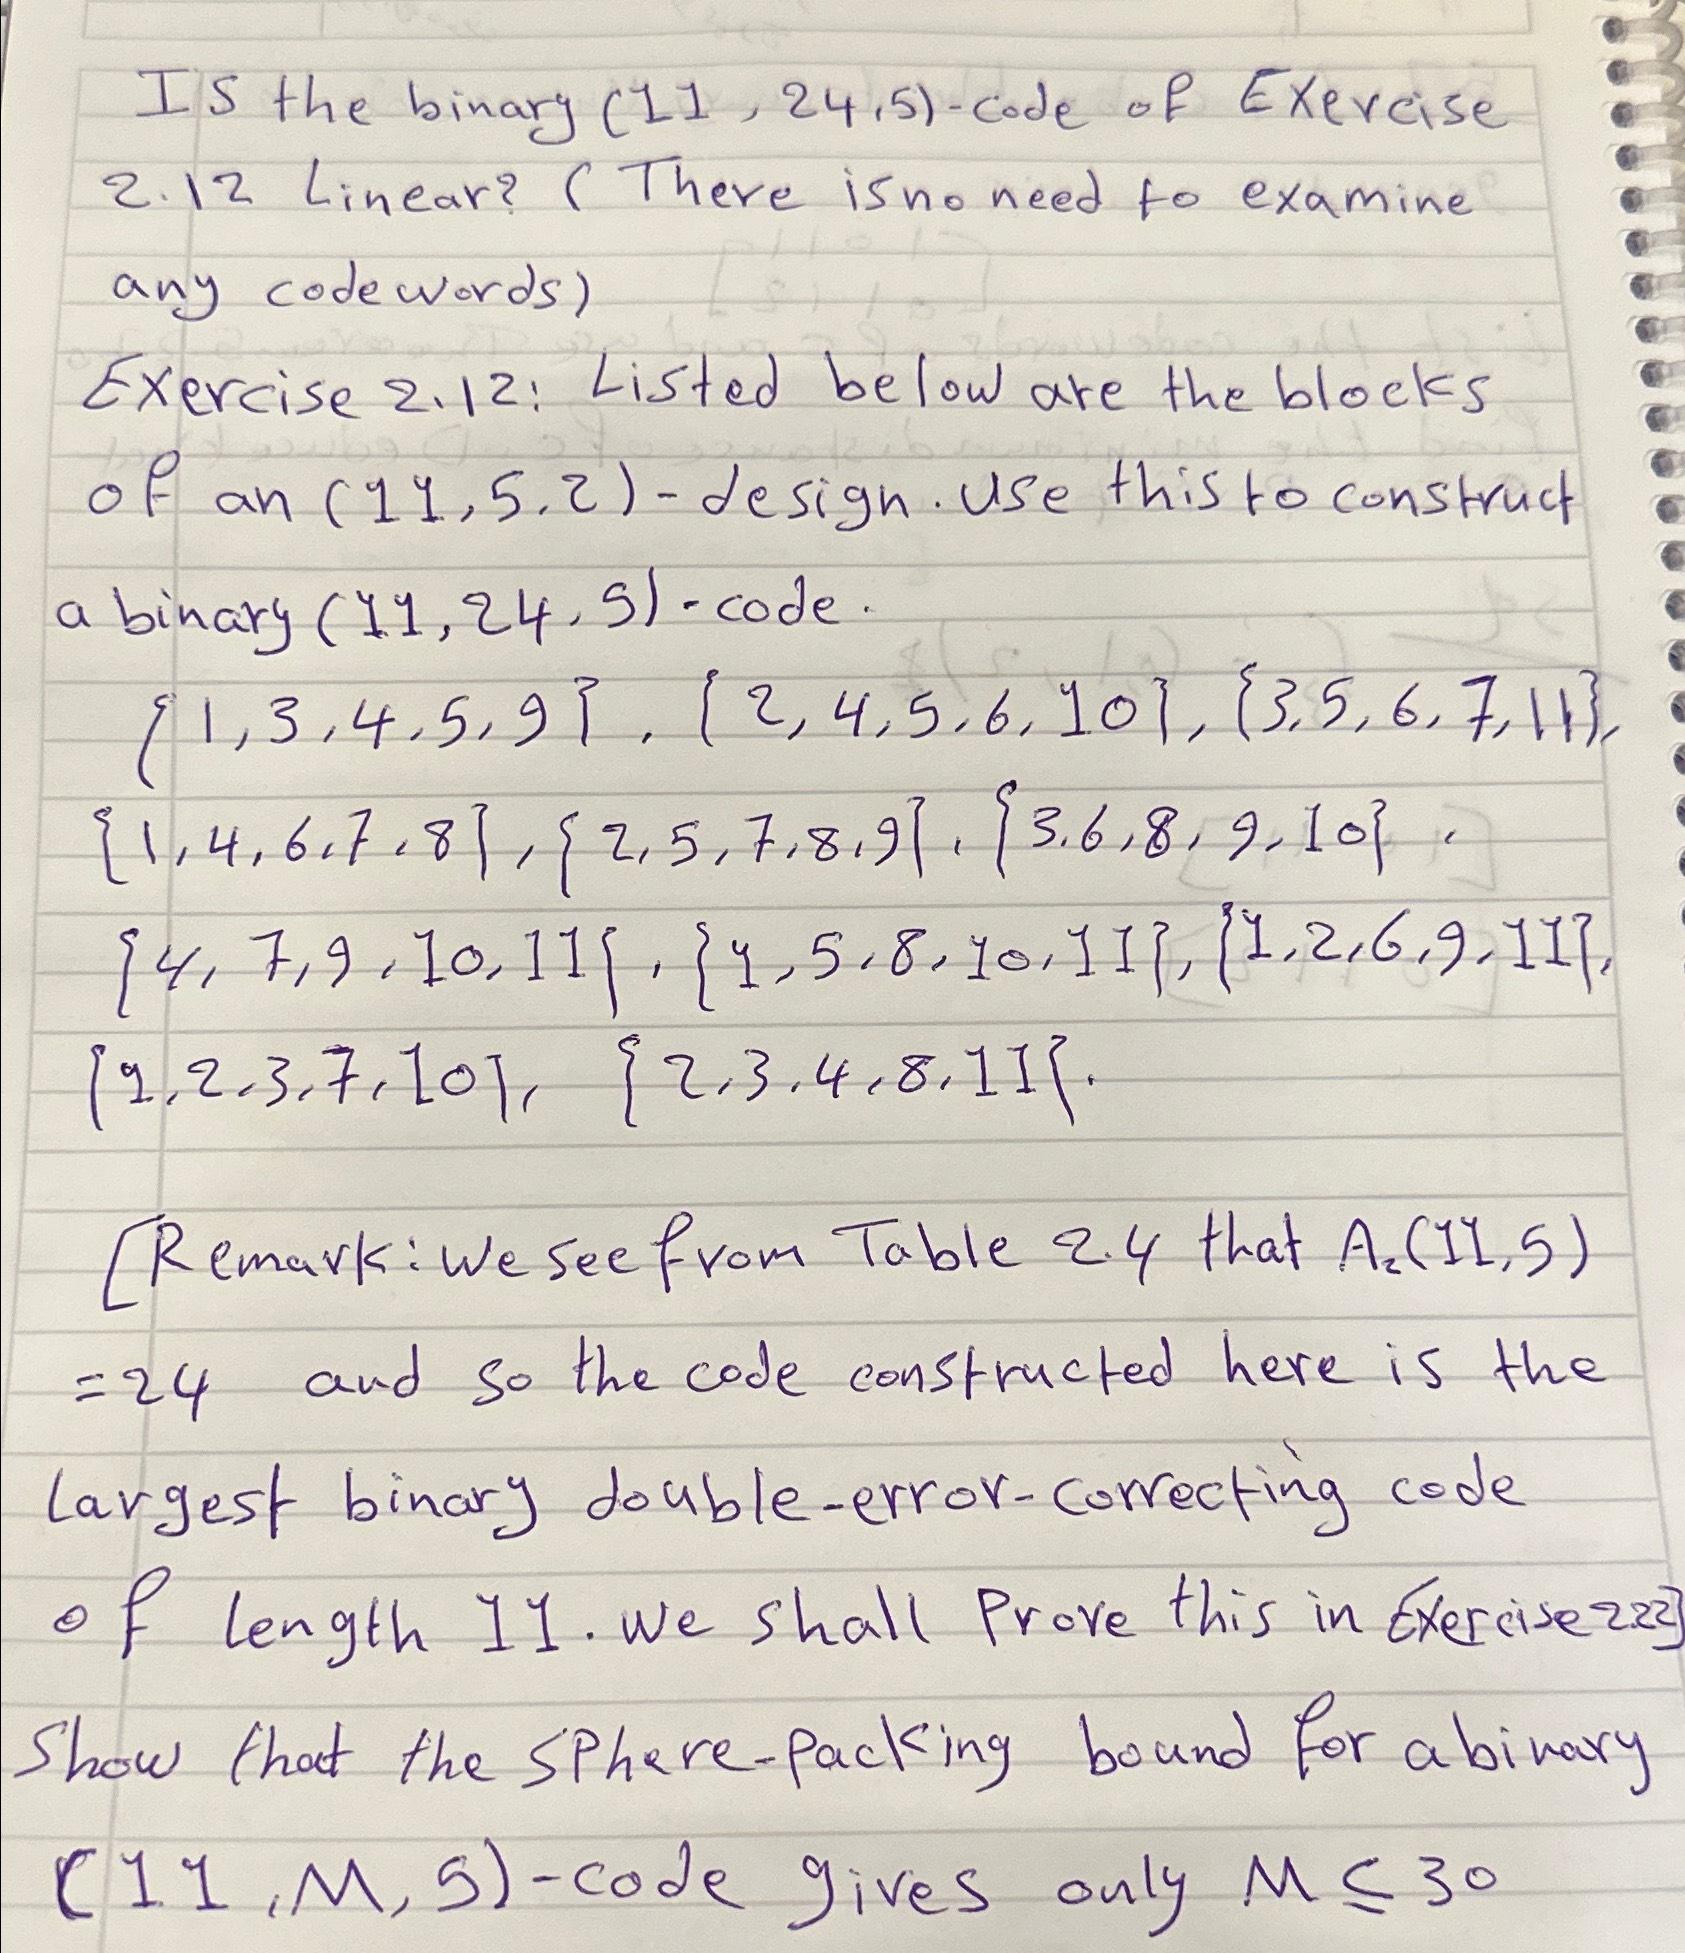 Is the binary (11, 24, 5)-code of Exercise
2.12 Linear? (There is no need to examine
any codewords)
Exercise 2.12: Listed below are the blocks
of an (11, 5, 2)-design. Use this to construct
a binary (11, 24, 5)-code.
{1, 3, 4, 5, 9}, {2, 4, 5, 6, 10}, {3, 5, 6, 7, 11},
{1, 4, 6, 7, 8}, {2, 5, 7, 8, 9}, {3, 6, 8, 9, 10},
{4, 7, 9, 10, 11}, {1, 5, 8, 10, 11}, {1, 2, 6, 9, 11},
{1, 2, 3, 7, 10}, {2, 3, 4, 8, 11}.
[Remark: We see from Table 2.4 that A₂(11, 5)
= 24 and so the code constructed here is the
largest binary double-error-correcting code
of length 11. We shall Prove this in Exercise 2.22]
Show that the sphere-packing bound for a binary
(11, M, 5)-code gives only M ≤ 30